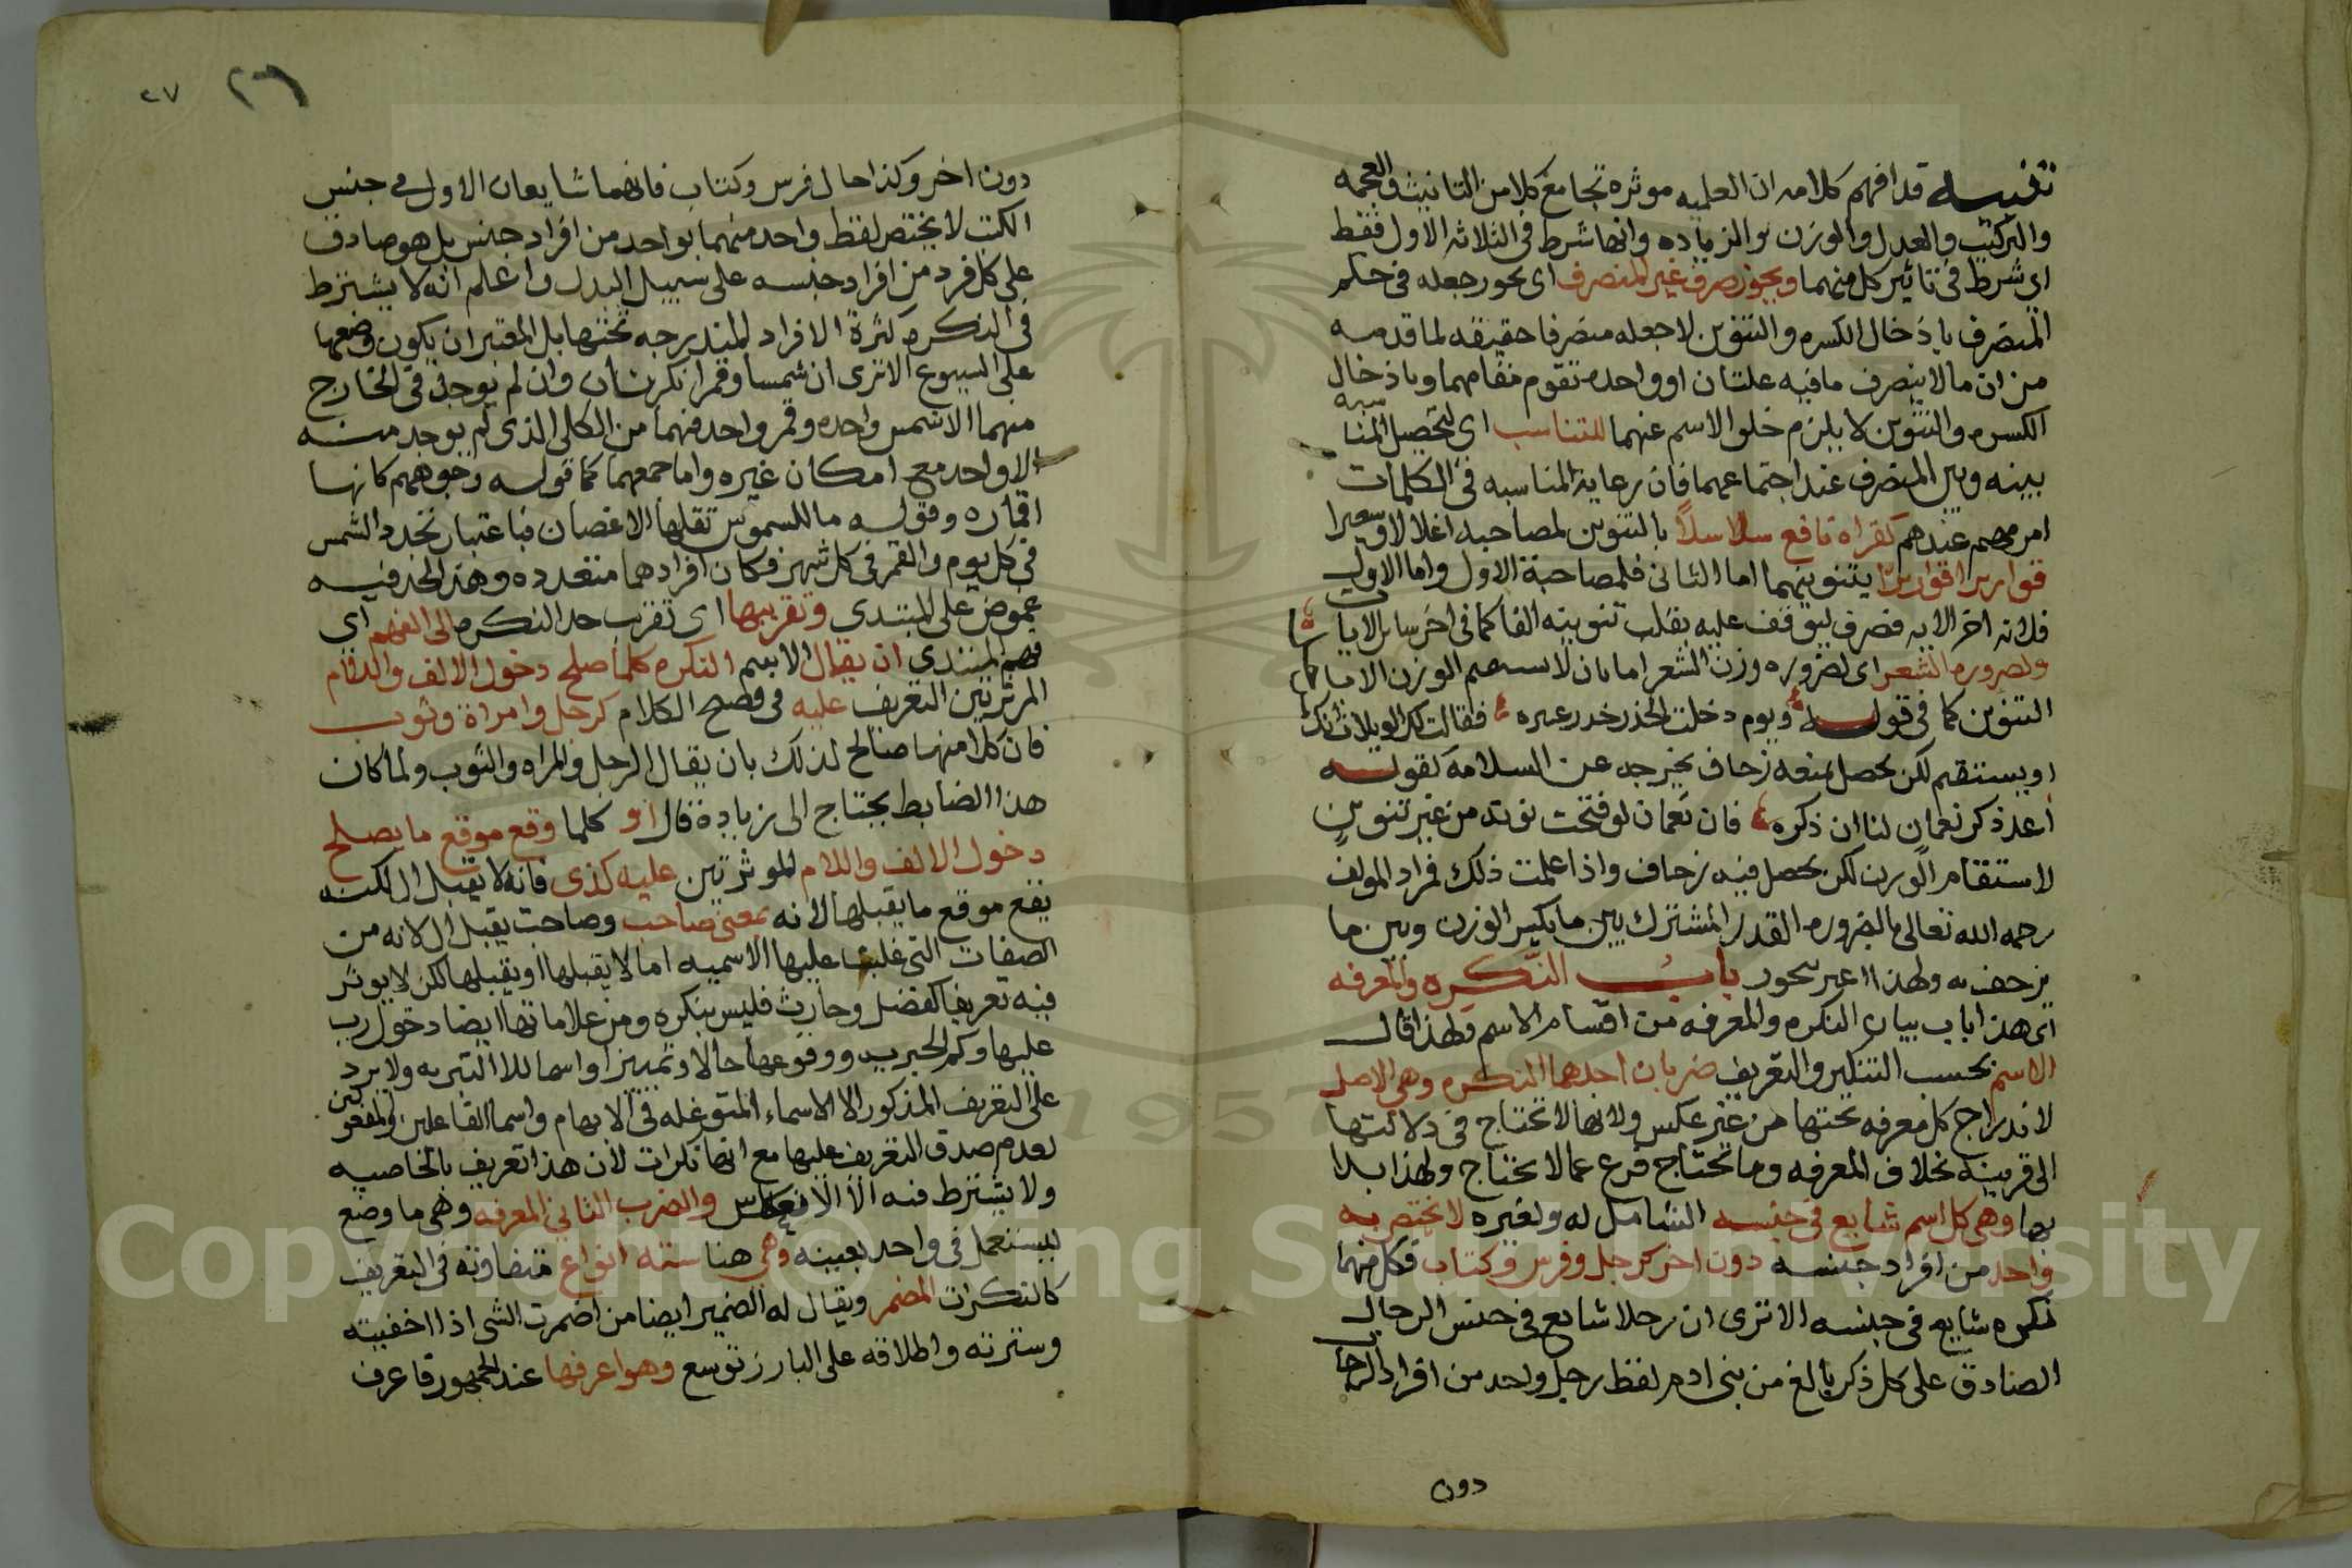 تنبيه قد افهم كلامه ان العلميه موثره تجامع كلا من التانيث والعجمه
والتركيب والعدل والوزن والزياده وانها شرط في الثلاثه الاول فقط
اي شرط في تاثير كل منهما ويجوز صرف غير المنصرف اى يجوز جعله في حكم
المنصرف بادخال الكسره والتنوين لا جعله منصرفا حقيقه لما قدمه
من ان ما لا ينصرف ما فيه علتان او واحده تقوم مقامهما وبادخال
الكسره والتنوين لا يلزم خلو الاسم عنهما للتناسب اى لتحصيل المناسبه
بينه وبين المنصرف عند اجتماعهما فان رعاية المناسبه في الكلمات
امر مهم عندهم كقراة نافع سلاسلاً بالتنوين لمصاحبه اغلالا وسعيرا
قواريرا قواريرا بتنوينهما اما الثانى فلمصاحبة الاول واما الاول
فلانه اخر الايه فصرف ليوقف عليه بقلب تنوينه الفا كما في اخر ساير الايات
ولضروره الشعر اى لضروره وزن الشعر اما بان لا يستقيم الوزن الا با
التنوين كما في قوله ويوم دخلت الخدر خدر عنيزه فقالت لك الويلات انك
او يستقيم لكن يحصل بمنعه زحاف يخرجه عن السلامة كقوله
اعد ذكر نعمان لنا ان ذكره فان نعمان لو فتحت نونه من غير تنوين
لاستقام الوزن لكن يحصل فيه زحاف واذا علمت ذلك فمراد المولف
رحمه الله تعالى بالضروره القدر المشترك بين ما يكسر الوزن وبين ما
يزحف به ولهذا عبر بيجوز باب النكره والمعرفه
اى هذا باب بيان النكره والمعرفه من اقسام الاسم ولهذا قال
الاسم بحسب التنكير والتعريف ضربان احدهما النكره وهي الاصل
لاندراج كل معرفه تحتها من غير عكس ولانها لا تحتاج في دلالتها
الى قرينه بخلاف المعرفه وما تحتاج فرع عما لا يحتاج ولهذا بدا
بها وهي كل اسم شايع في جنسه الشامل له ولغيره لا يختص به
واحد من افراد جنسه دون اخر كرجل وفرس وكتاب فكل منهما
نكره شايع في جنسه الا ترى ان رجلا شايع في جنس الرجال
الصادق على كل ذكر بالغ من بني ادم لفظ رجل واحد من افراد الرجال
دون
٢٦ ٢٧
دون اخر وكذا حال فرس وكتاب فانهما شايعان الاول في جنس
الكتب لا يختص لفظ واحد منهما بواحد من افراد جنس بل هو صادق
على كل فرد من افراد جنسه على سبيل البدل واعلم انه لا يشترط
في النكره كثرة الافراد المندرجه تحتها بل المعتبر ان يكون وضعها
على الشيوع الا ترى ان شمسا وقمرا نكرتان وان لم يوجد في الخارج
منهما الا شمس واحده وقمر واحد فهما من الكلى الذى لم يوجد منه
الا واحد مع امكان غيره واما جمعهما كما قوله وجوههم كانها
اقماره وقوله ما للسموس تقلها الاغصان فباعتبار تجدد الشمس
في كل يوم والقمر في كل شهر فكان افرادهما متعدده وهذا الحد فيه
غموض على المبتدى وتقريبها اى تقريب حد النكره الى الفهم اي
فهم المبتدى ان يقال الاسم النكره كلما صلح دخول الالف واللام
المؤثرتين التعريف عليه في فصيح الكلام كرجل وامراة وثوب
فان كلا منها صالح لذلك بان يقال الرجل والمراه والثوب ولما كان
هذا الضابط يحتاج الى زيادة قال او كلما وقع موقع ما يصلح
دخول الالف واللام الموثرتين عليه كذى فانه لا يقبل ال لكنه
يقع موقع ما يقبلها لانه بمعنى صاحب وصاحب يقبل ال لانه من
الصفات التي غلبت عليها الاسميه اما لا يقبلها او يقبلها لكن لا يوثر
فيه تعريفا كفضل وحارث فليس بنكره ومن علاماتها ايضا دخول رب
عليها وكم الخبريه ووقوعها حالا وتمييزا واسما للا التبريه ولا يرد
على التعريف المذكور الا الاسماء المتوغله في الابهام واسما الفاعلين والمفعولين
لعدم صدق التعريف عليها مع انها نكرات لان هذا تعريف بالخاصيه
ولا يشترط فيه الانعكاس والضرب الثاني المعرفه وهي ما وضع
ليستعمل في واحد بعينه وهي هنا سته انواع متفاوته في التعريف
كالنكرات المضمر ويقال له الضمير ايضا من اضمرت الشى اذا اخفيته
وسترته واطلاقه على البارز توسع وهو اعرفها عند الجمهور فاعرف